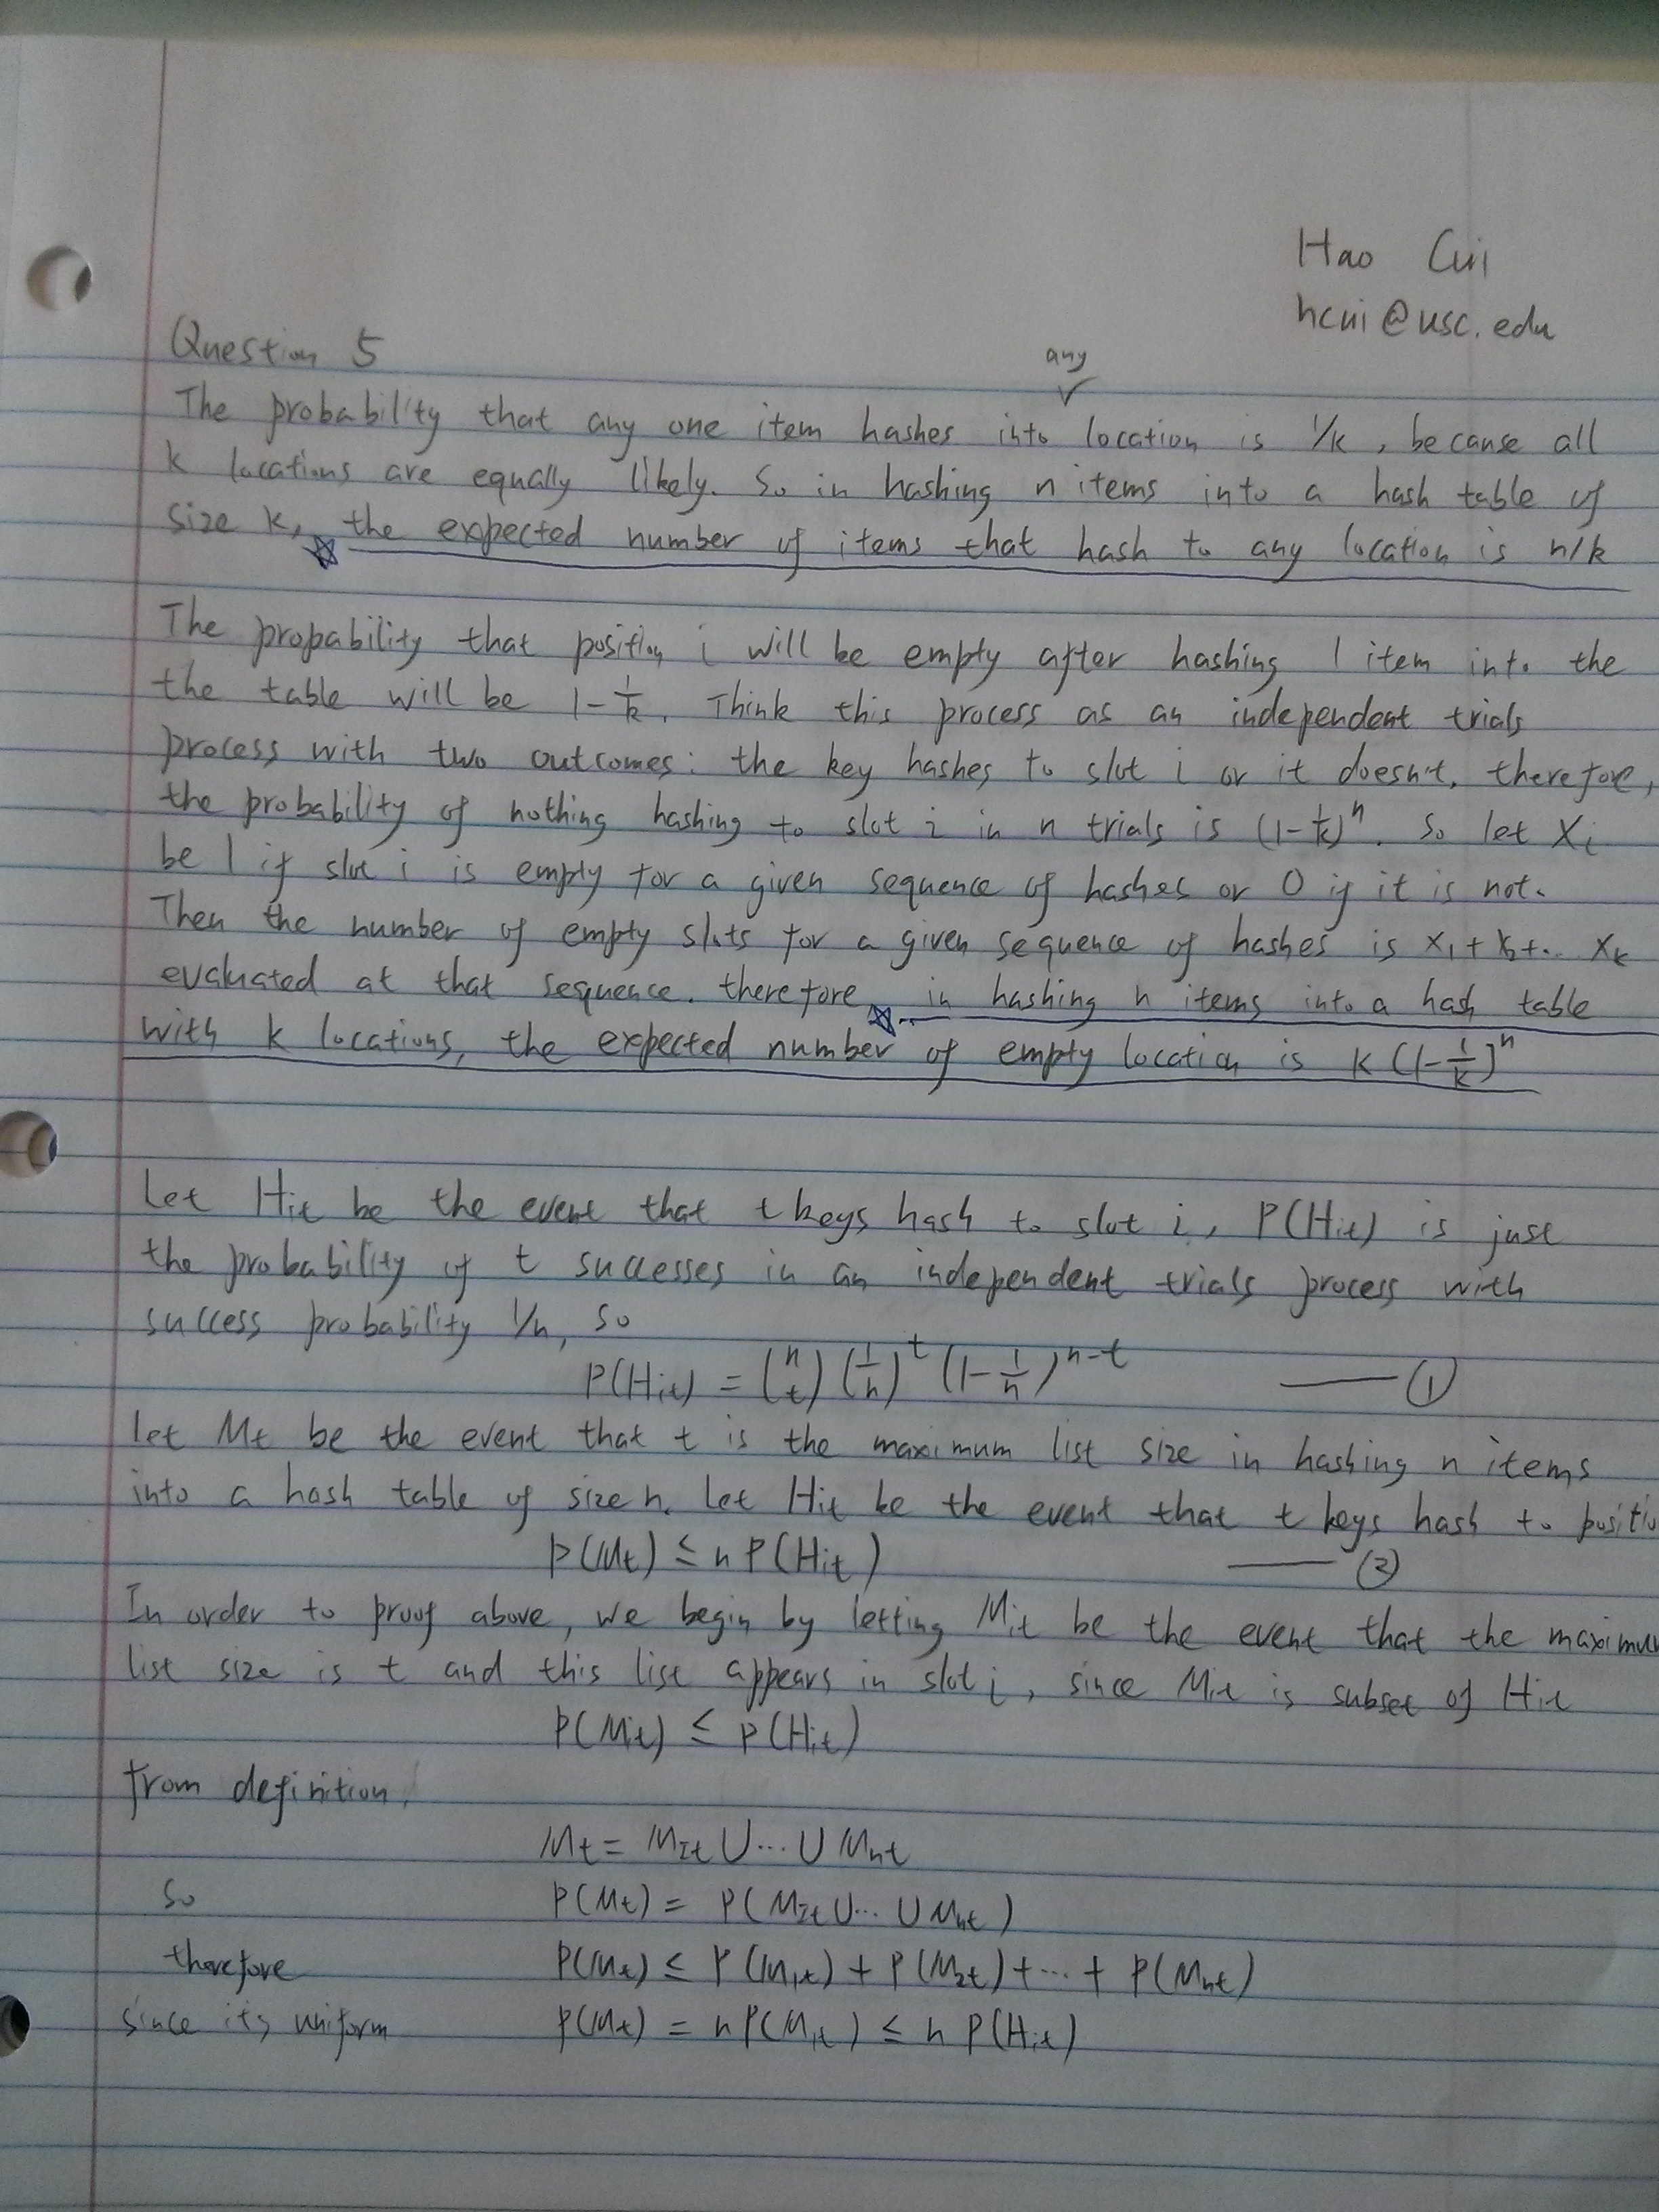 Hao Cui
hcui@usc.edu
Question 5
any
The probability that any one item hashes into location is 1/k, because all
k locations are equally likely. So in hashing n items into a hash table of
size k, the expected number of items that hash to any location is n/k
The propability that position i will be empty after hashing 1 item into the
the table will be 1-1/k. Think this process as an independent trials
process with two outcomes: the key hashes to slot i or it doesn't, therefore,
the probability of nothing hashing to slot i in n trials is (1-1/k)^n. So let Xi
be 1 if slot i is empty for a given sequence of hashes or 0 if it is not.
Then the number of empty slots for a given sequence of hashes is X1+X2+... Xk
evaluated at that sequence. therefore, in hashing n items into a hash table
with k locations, the expected number of empty location is k(1-1/k)^n
Let Hit be the event that t keys hash to slot i, P(Hit) is just
the probability of t successes in an independent trials process with
success probability 1/n, so
P(Hit) = (n t)(1/n)^t (1-1/n)^n-t —— ①
let Mt be the event that t is the maximum list size in hashing n items
into a hash table of size n. Let Hit be the event that t keys hash to positio
P(Mt) ≤ n P(Hit) —— ②
In order to proof above, we begin by letting Mit be the event that the maximum
list size is t and this list appears in slot i, since Mit is subset of Hit
P(Mit) ≤ P(Hit)
from definition,
Mt = MIt ∪ ... ∪ Mnt
So P(Mt) = P(MIt ∪ ... ∪ Mnt)
therefore P(Mt) ≤ P(M1t) + P(M2t) + ... + P(Mnt)
since its uniform P(Mt) = n P(Mit) ≤ n P(Hit)